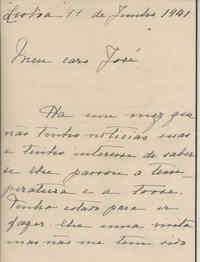 Lisboa 11 de Junho 1941
Meu caro José
Ha um mez que
não tenho noticias suas
e tenho interesse de saber
se lhe passou a tem-
peratura e a tosse.
Tenho estado para ir
fazer lhe uma visita
mas não me tem sido